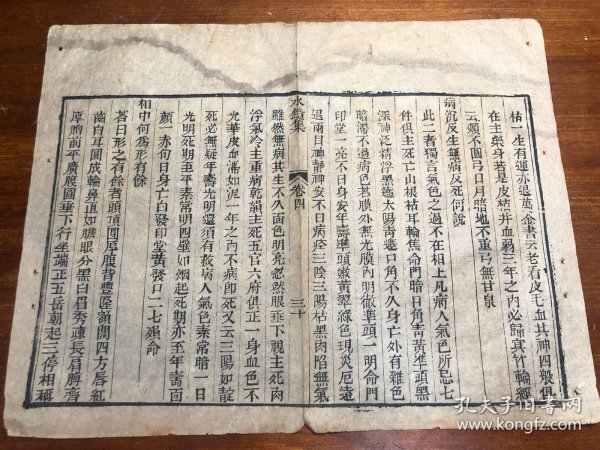 枯一生有運亦退萬金書云老看皮毛血其神四般俱
在主榮身若是皮枯幷血弱三年之內必歸冥竹輪經
云頦不圓弓口月暗地不重弓無甘泉
病沉反生無病反死何說
此二者獨言氣色之過不在相上凡病人氣色所忌七
件俱主死亡山根枯耳輪焦命門暗日角靑黃準頭黑
深神泛精浮黑遶太陽靑遶口角不久身亡外有雜色
暗滯不過病色若膜外無光膜內明徹準頭一明命門
印堂一亮不日身安年壽準頭嫩黃翠綠色現災厄遠
退兩目神靜神安不日病痊三陰三陽枯黑肉陷無氣
水鏡集
卷四
三十
雖然無病其生不久面色明亮忽然眼垂下視主死肉
浮氣冷主重病乾韻主死五官六府俱正一身血色不
光華皮血滯如泥一年之內不病卽死又云三陽如靛
死必無疑年壽光明還須有救病人氣色素常暗一日
光明死期至平素常明四壁如烟起死期亦至年壽回
顏一赤旬日身亡白發印堂黃發口二七殞命
相中何爲形有餘
荅曰形之有餘者頭頂圓厚腹背豐隆額闊四方唇紅
齒白耳圓成輪鼻直如膽眼分黑白眉秀疎長肩膊齊
厚胸前平廣腹圓垂下行坐端正五岳朝起三停相稱
孔夫子旧书网
www.kongfz.com